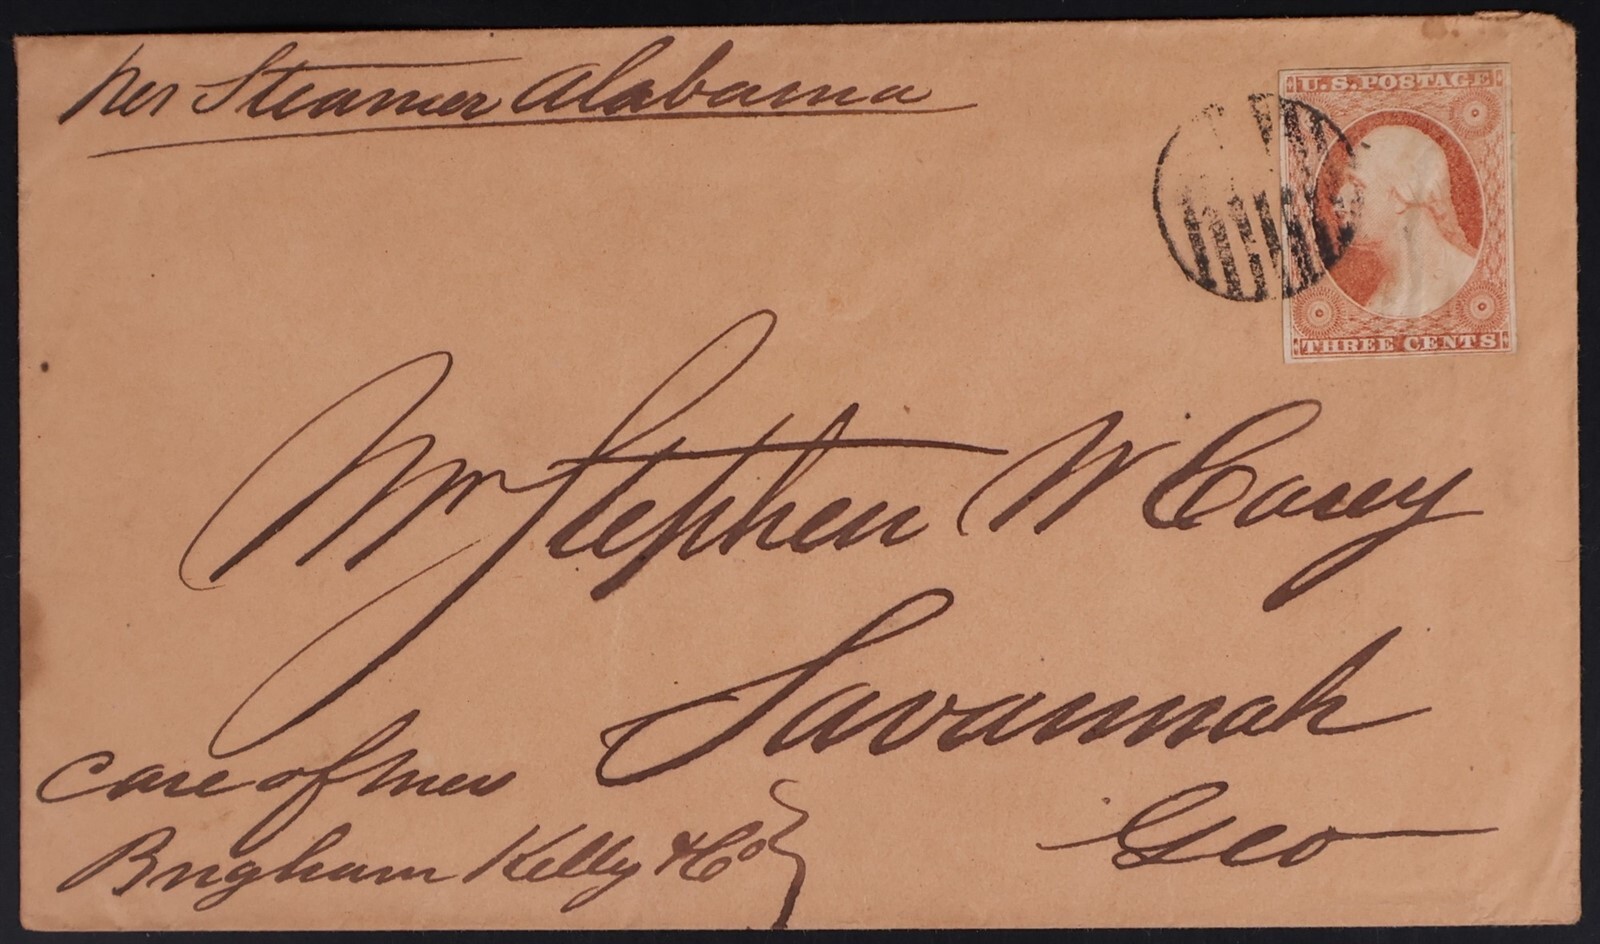 per Steamer Alabama
U.S. POSTAGE
THREE CENTS
Mr Stephen W Casey
Savannah
Geo
Care of Mess
Brigham Kelly & Co